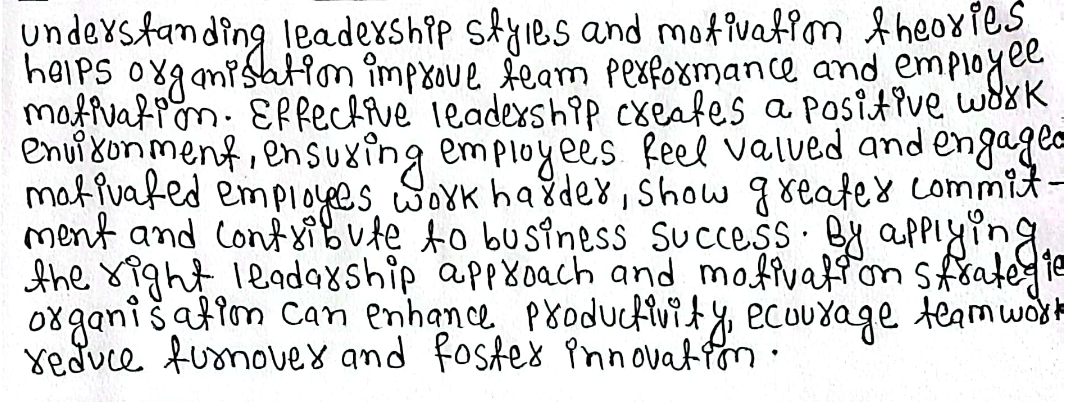 understanding leadership styles and motivation theories
helps organisation improve team performance and employee
motivation. Effective leadership creates a positive work
environment, ensuring employees feel valued and engaged
motivated employes work harder, show greater commit-
ment and contribute to business success. By applying
the right leadarship approach and motivation strategie
organisation can enhance productivity, ecourage teamwork
reduce turnover and foster innovation.